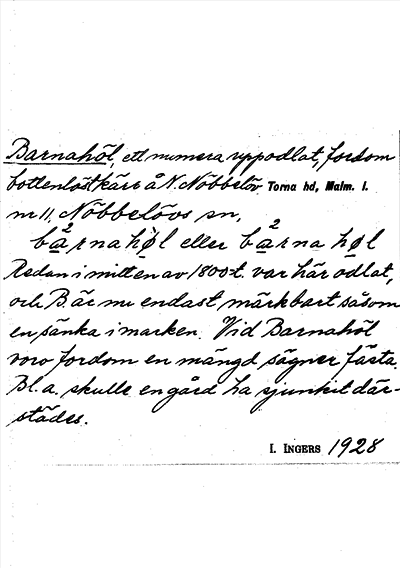 Barnahöl, ett numera uppodlat, fordom
bottenlöst kärr å N. Nöbbelöv Torna hd, Malm. l.
nr 11. Nöbbelövs sn.
bą²rnahøl eller bą²rna høl
Redan i mitten av 1800-t. var här odlat,
och B. är nu endast märkbart såsom
en sänka i marken. Vid Barnahöl
voro fordom en mängd sägner fästa.
Bl.a. skulle en gård ha sjunkit där-
städes.
I. INGERS 1928